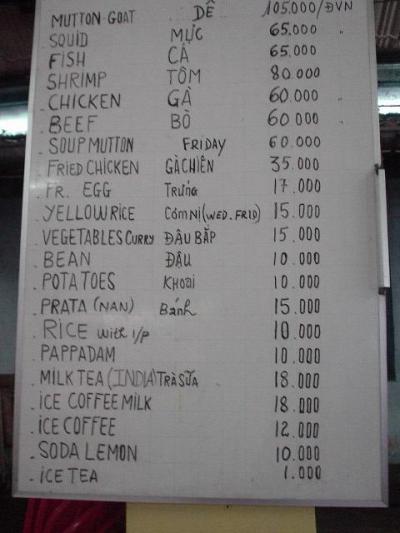 MUTTON-GOAT DÊ 105.000/ĐVN
SQUID MỰC 65.000
FISH CÁ 65.000
SHRIMP TÔM 80.000
CHICKEN GÀ 60.000 "
BEEF BÒ 60.000 "
SOUP MUTTON FRIDAY 60.000
FRIED CHICKEN GÀ CHIÊN 35.000
FR. EGG Trứng 17.000
YELLOW RICE Cơm Nị (WED. FRID) 15.000
VEGETABLES CURRY ĐẬU BẮP 15.000
BEAN ĐẬU 10.000
POTATOES KHOAI 10.000
PRATA (NAN) Bánh 15.000
RICE with 1/P 10.000
PAPPADAM 10.000
MILK TEA (INDIA) TRÀ SỮA 18.000
iCE COFFEE MILK 18.000
iCE COFFEE 12.000
SODA LEMON 10.000
iCE TEA 1.000